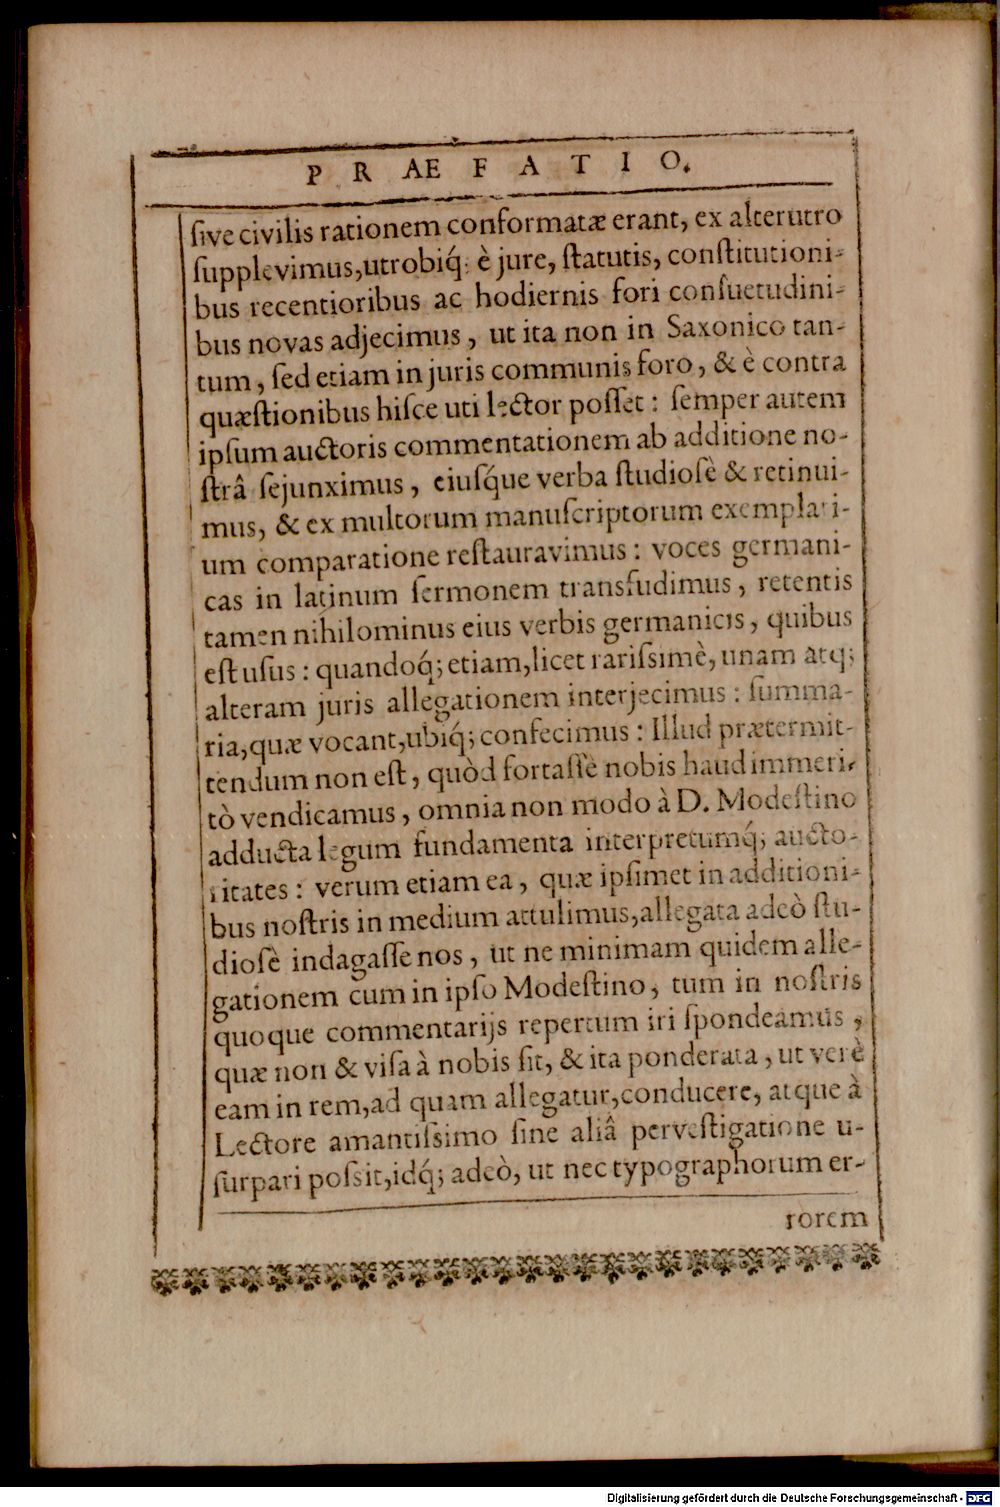 P R AE F A T I O.
ſive civilis rationem conformatæ erant, ex alterutro
ſupplevimus,utrobiq́; è jure, ſtatutis, conſtitutioni-
bus recentioribus ac hodiernis fori conſuetudini-
bus novas adjecimus, ut ita non in Saxonico tan-
tum, ſed etiam in juris communis foro, & è contra
quæſtionibus hiſce uti lector poſſet: ſemper autem
ipſum auctoris commentationem ab additione no-
ſtrâ ſejunximus, eiuſq́ue verba ſtudioſè & retinui-
mus, & ex multorum manuſcriptorum exemplari-
um comparatione reſtauravimus: voces germani-
cas in latinum ſermonem transfudimus, retentis
tamen nihilominus eius verbis germanicis, quibus
eſt uſus: quandoq́; etiam,licet rariſsimè, unam atq;
alteram juris allegationem interjecimus: ſumma-
ria,quæ vocant,ubiq́; confecimus: Illud prætermit-
tendum non eſt, quòd fortaſſè nobis haud immeri-
tò vendicamus, omnia non modo à D. Modeſtino
adducta legum fundamenta interpretumq́; aucto-
ritates: verum etiam ea, quæ ipſimet in additioni-
bus noſtris in medium attulimus,allegata adeò ſtu-
dioſè indagaſſe nos, ut ne minimam quidem alle-
gationem cum in ipſo Modeſtino, tum in noſtris
quoque commentarijs repertum iri ſpondeamus,
quæ non & viſa à nobis ſit, & ita ponderata, ut verè
eam in rem,ad quam allegatur,conducere, atque à
Lectore amantiſsimo ſine aliâ perveſtigatione u-
ſurpari poſsit,idq́; adeò, ut nec typographorum er-
rorem
Digitalisierung gefördert durch die Deutsche Forschungsgemeinschaft - DFG